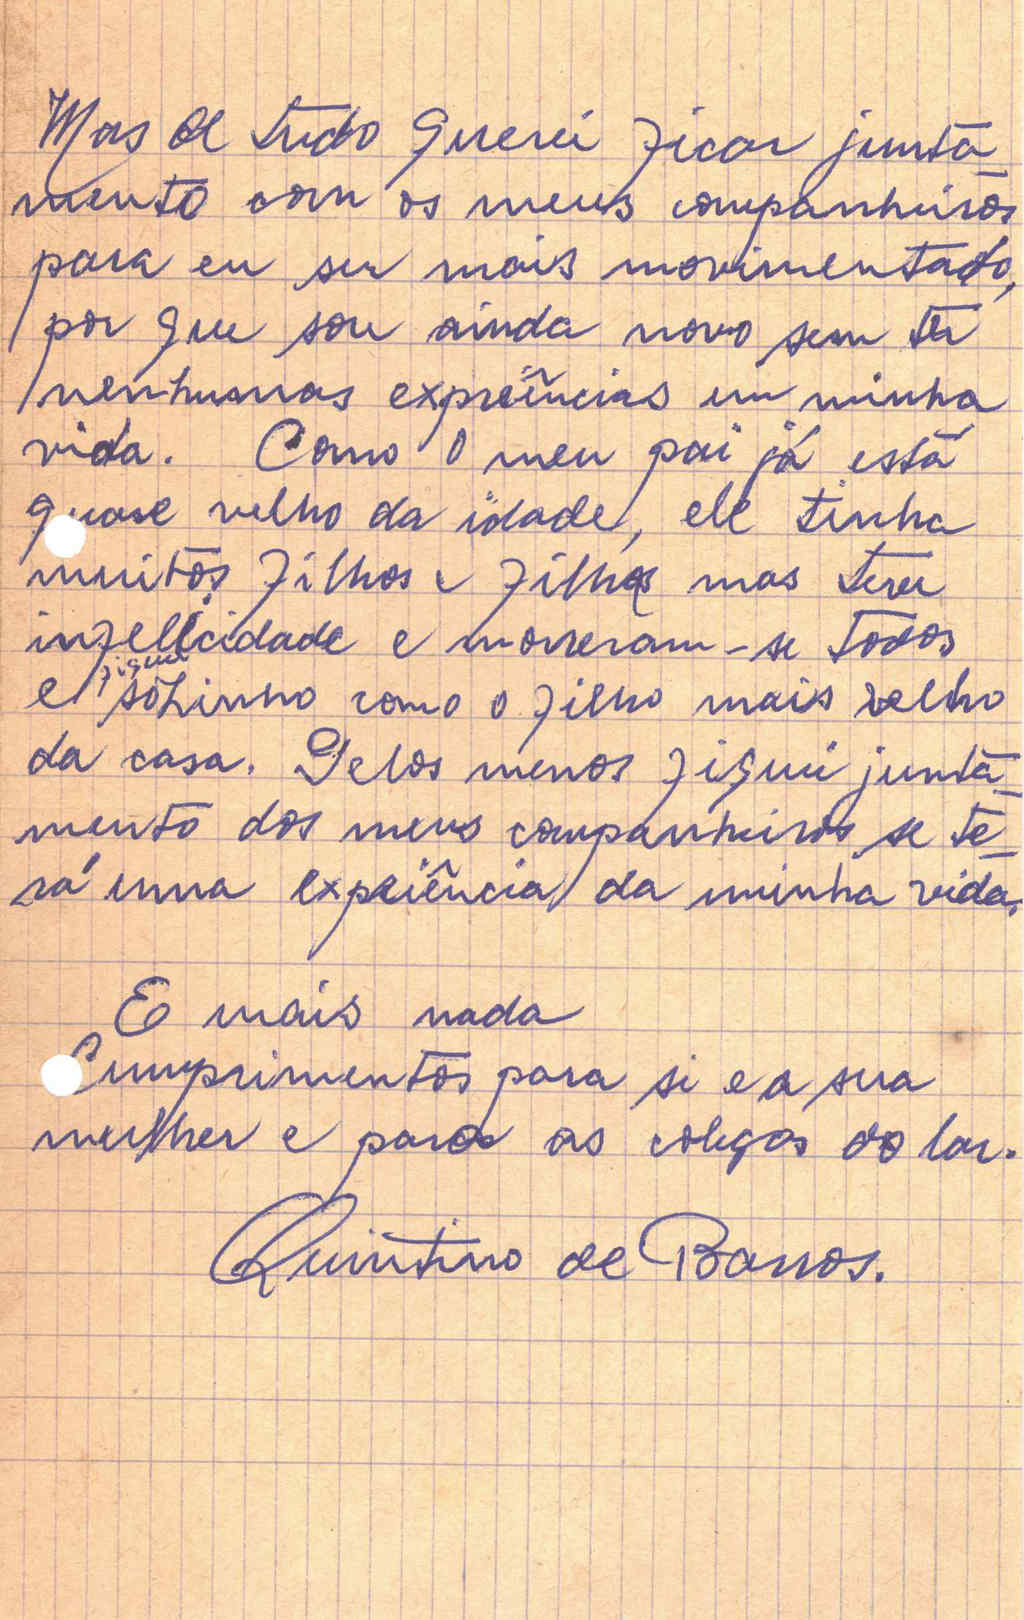 Mas de tudo querei ficar junta
mento com os meus companheiros
para eu ser mais movimentado,
por que sou ainda novo sem ter
nenhumas expreiências em minha
vida. Como o meu pai já está
quase velho da idade, ele tinha
muitos filhos e filhas mas teve
infelicidade e morreram-se todos
e fiquei sòzinho como o filho mais velho
da casa. Pelos menos fiquei junta_
mento dos meus companheiros se te_
rá uma expreiência da minha vida.
E mais nada
Cumprimentos para si e a sua
mulher e para os colegas do lar.
Quintino de Barros.